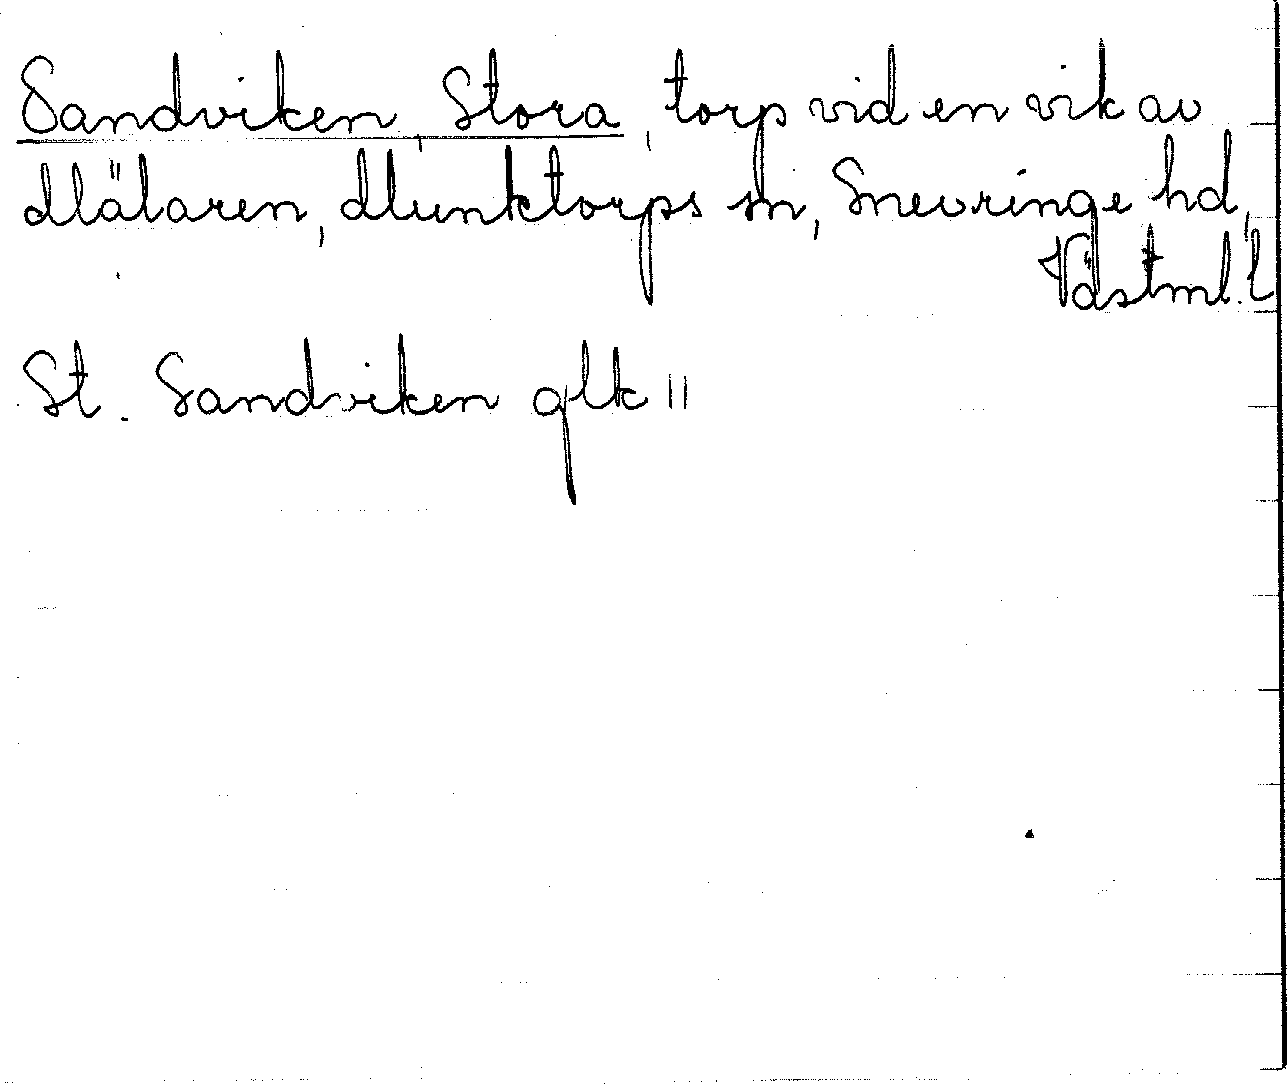 Sandviken, Stora, torp vid en vik av
Mälaren, Munktorps sn, Snevringe hd,
Västml. l
St. Sandviken glk 11